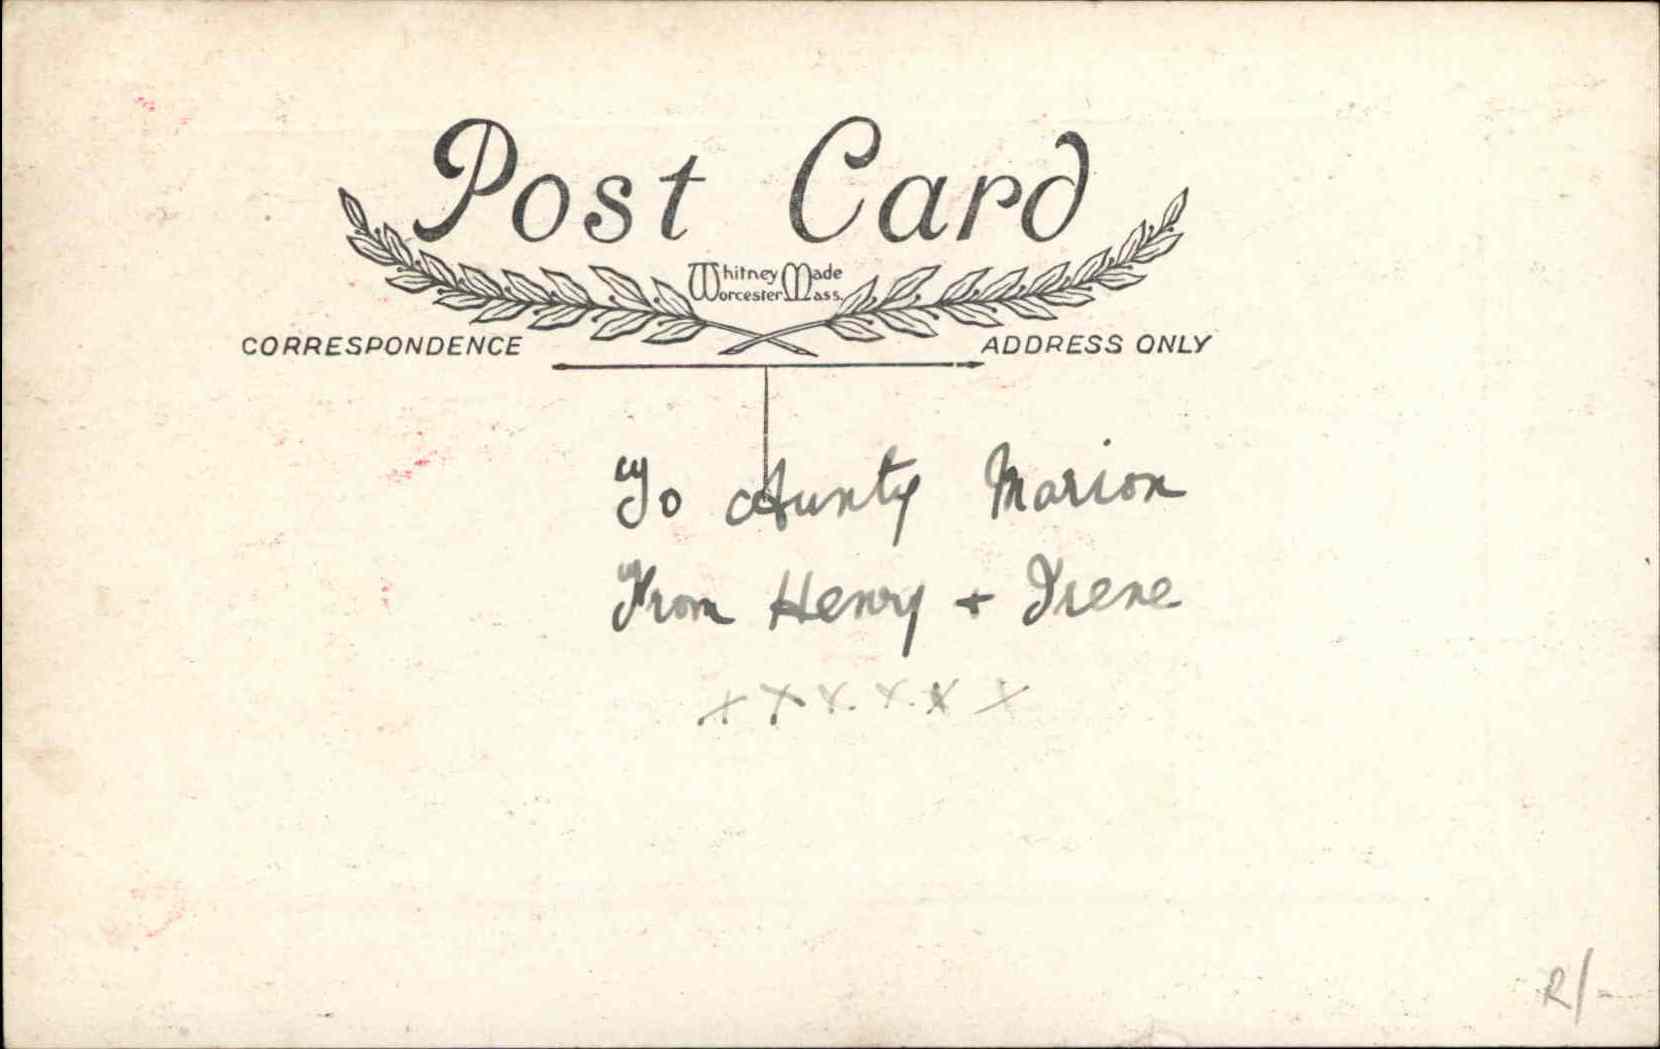 Post Card
Whitney Made
Worcester Mass.
CORRESPONDENCE
ADDRESS ONLY
To Aunty Marion
From Henry + Irene
x x x x x x
R/-